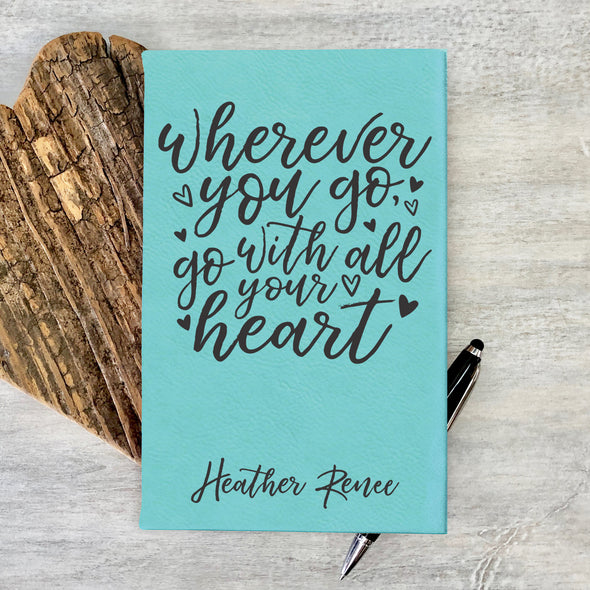 Wherever
you go,
go with all
your
heart
Heather Renee